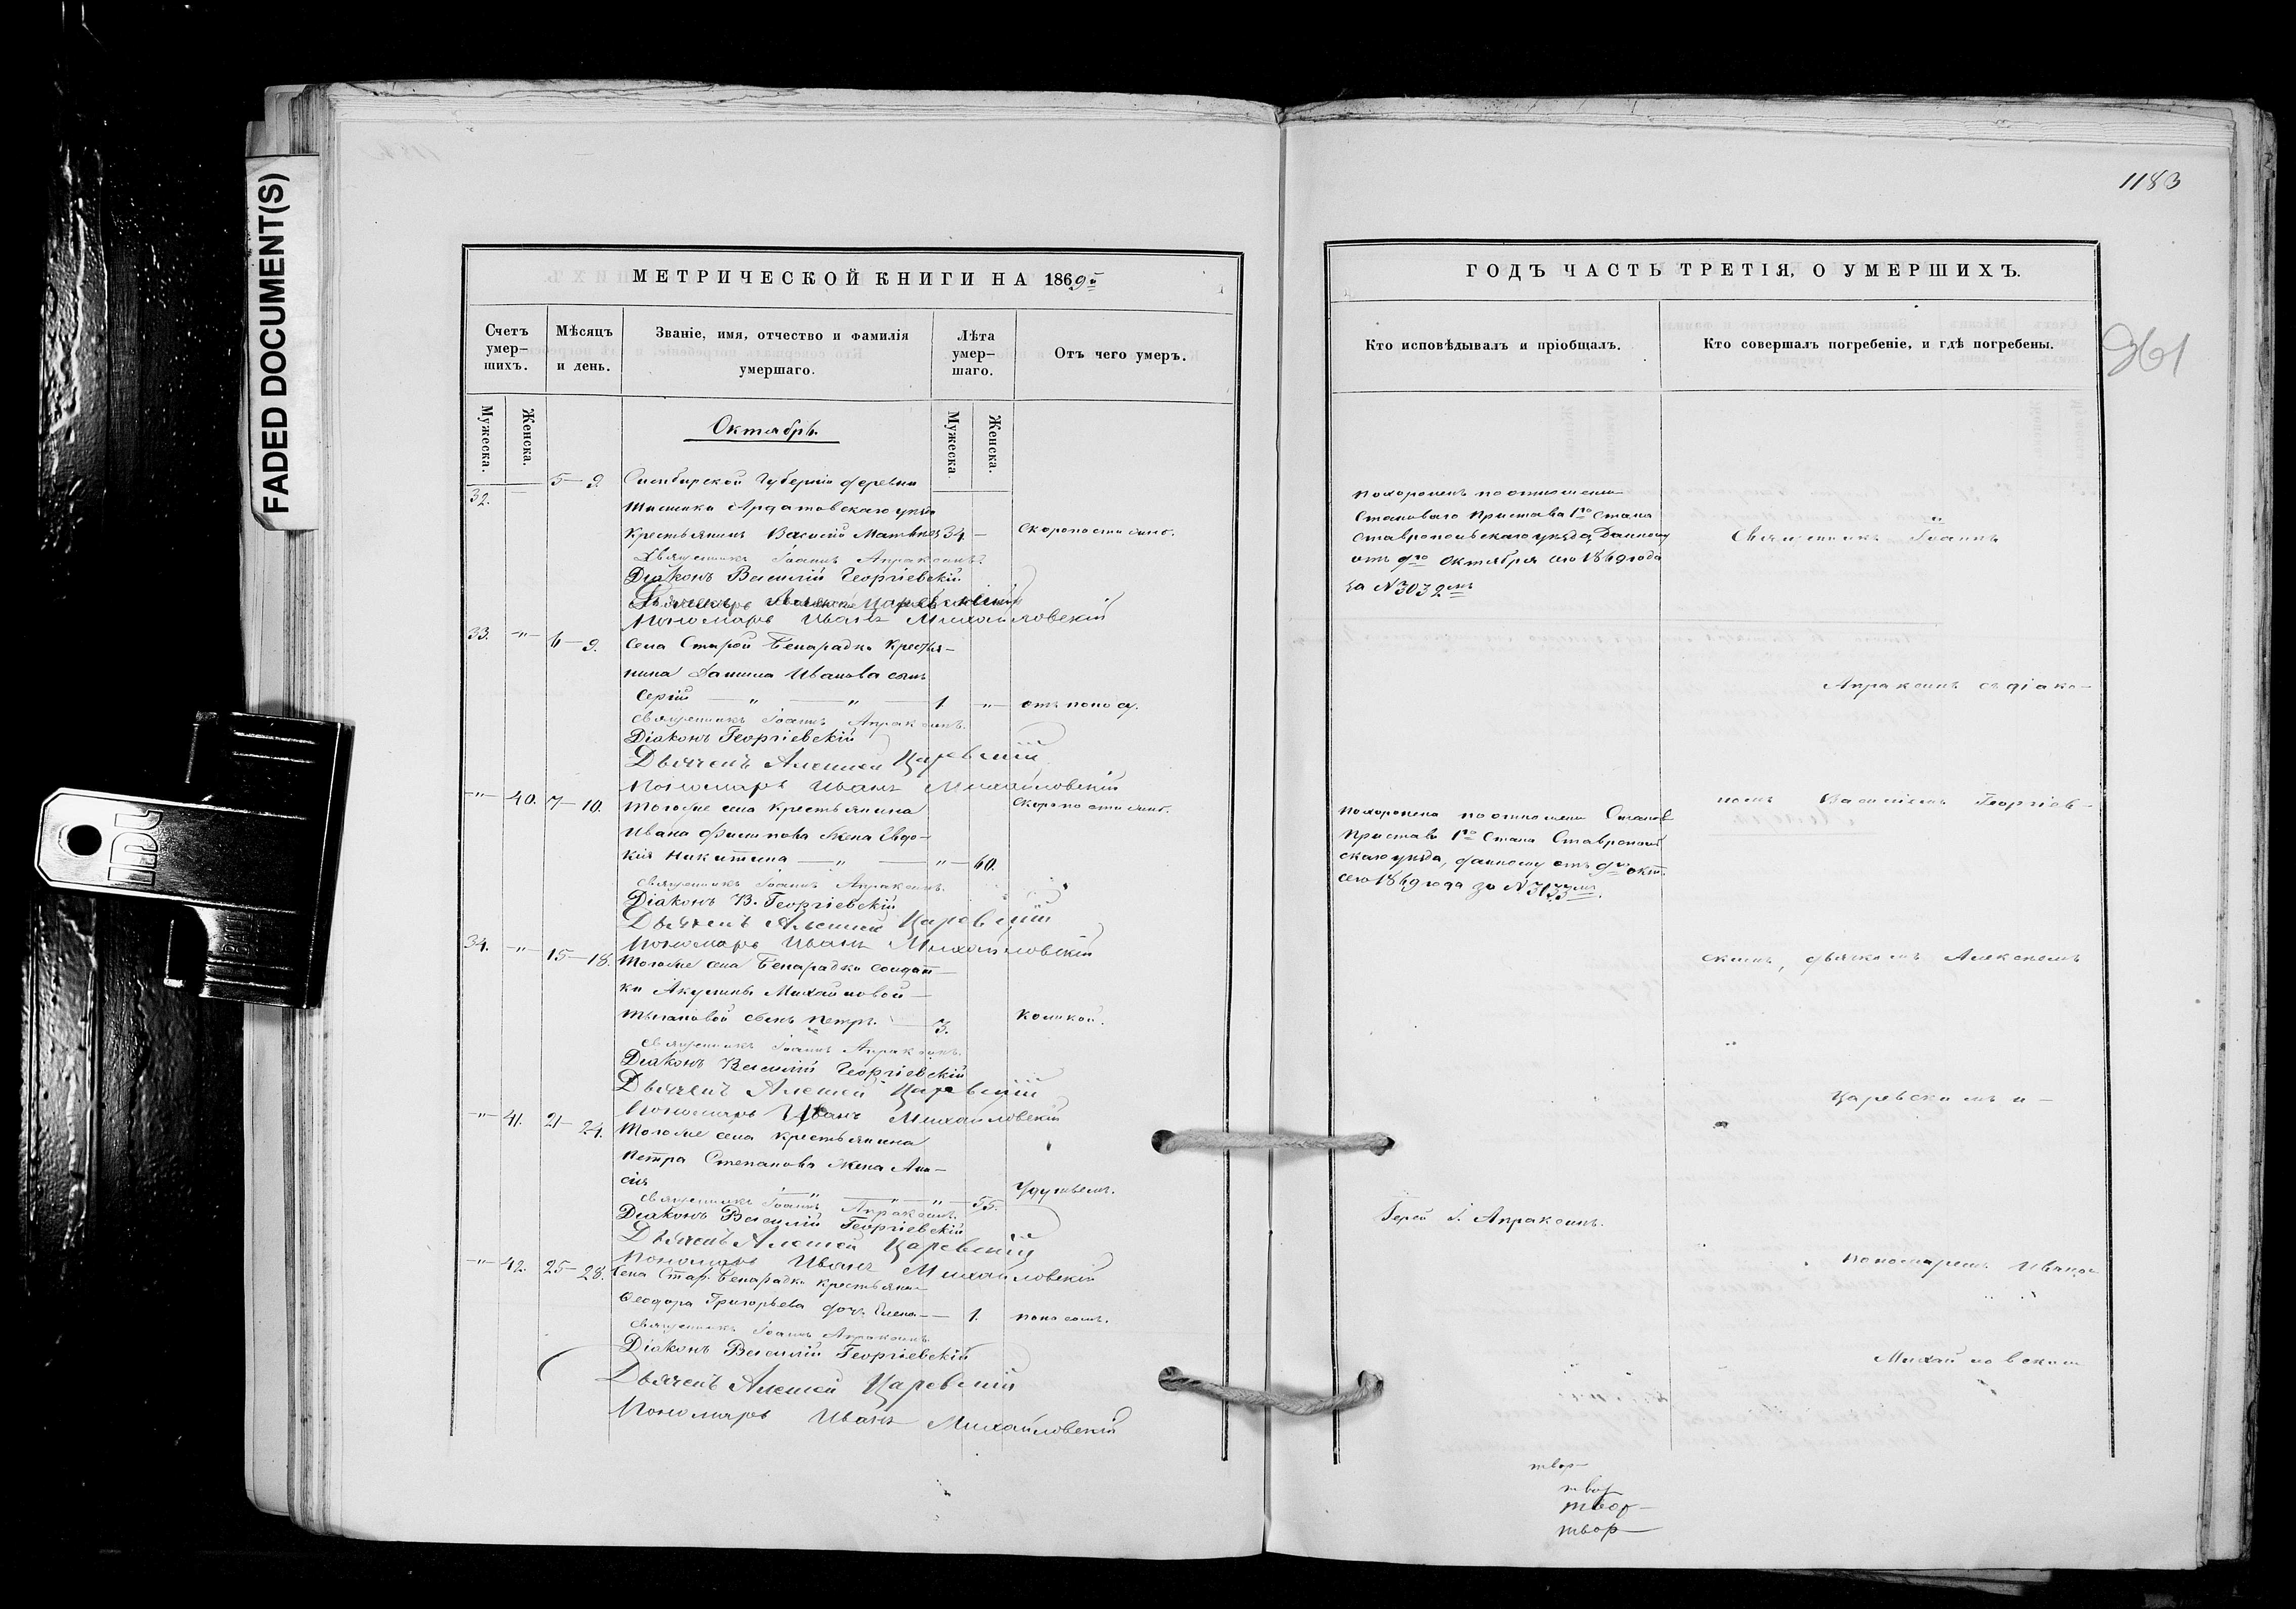 FADED DOCUMENT(S)
МЕТРИЧЕСКОЙ КНИГИ НА 1869й
Счетъ умер-
шихъ.
Мѣсяцъ
и день.
Званіе, имя, отчество и фамилія
умершаго.
Лѣта
умер-
шаго.
Отъ чего умеръ.
Мужеска.
Женска.
Мужеска
Женска.
Октябрь.
32. — 5—9. Симбирской Губерніи деревни
Ардатовскаго уѣзда
Крестьянинъ Василій 34 — Скоропостижно.
Священникъ Іоаннъ Апраксинъ.
Діаконъ Василій Георгіевскій
Дьячекъ Алексей Царевскій
Пономарь Иванъ Михайловскій
33. „ 6—9. Села Старой Бинарадки Крестья-
нина Данила Иванова сынъ
Сергій — „ — „ — 1 „ отъ поносу.
Священникъ Іоаннъ Апраксинъ.
Діаконъ Георгіевскій
Дьячекъ Алексей Царевскій
Пономарь Иванъ Михайловскій
„ 40. 7—10. Тогоже села крестьянина Скоропостижно.
Ивана Филипова жена Евдо-
кія Никитина — „ — „ 60.
Священникъ Іоаннъ Апраксинъ.
Діаконъ В. Георгіевскій
Дьячекъ Алексей Царевскій
Пономарь Иванъ Михайловскій
34. „ 15—18. Тогоже села Бинарадки солдат-
ки Акулины Михайловой
сынъ Петръ. — 3. Коликой.
Священникъ Іоаннъ Апраксинъ.
Діаконъ Василій Георгіевскій
Дьячекъ Алексей Царевскій
Пономарь Иванъ Михайловскій
„ 41. 21—24. Тогоже села крестьянина
Петра Степанова жена Ани-
сія „ „ „ 55. Удушьемъ.
Священникъ Іоаннъ Апраксинъ.
Діаконъ Василій Георгіевскій
Дьячекъ Алексей Царевскій
Пономарь Иванъ Михайловскій
„ 42. 25—28. Села Стар. Бинарадки крестьяни-
Ѳеодора Григорьева дочь Елена — 1. поносомъ.
Священникъ Іоаннъ Апраксинъ
Діаконъ Василій Георгіевскій
Дьячекъ Алексей Царевскій
Пономарь Иванъ Михайловскій
1183
ГОДЪ ЧАСТЬ ТРЕТІЯ, О УМЕРШИХЪ.
361
Кто исповѣдывалъ и пріобщалъ.
Кто совершалъ погребеніе, и гдѣ погребены.
похороненъ по отношенію
Становаго Пристава 1го Стана
Ставропольскаго уѣзда, данному
отъ 9го Октября сего 1869 года
за N 3032мъ
Священникъ Іоаннъ
Апраксинъ съ діако-
номъ Василіемъ Георгіев-
похоронена по отношенію Станов
Пристава 1го Стана Ставрополь
скаго уѣзда, данному отъ 9го окт.
сего 1869 года за N 3133мъ.
скимъ, дьячкомъ Алексѣемъ
Царевскимъ и —
Іерей І. Апраксинъ.
пономаремъ Иваномъ
Михайловскимъ
твор-
твор
твор-
твор-